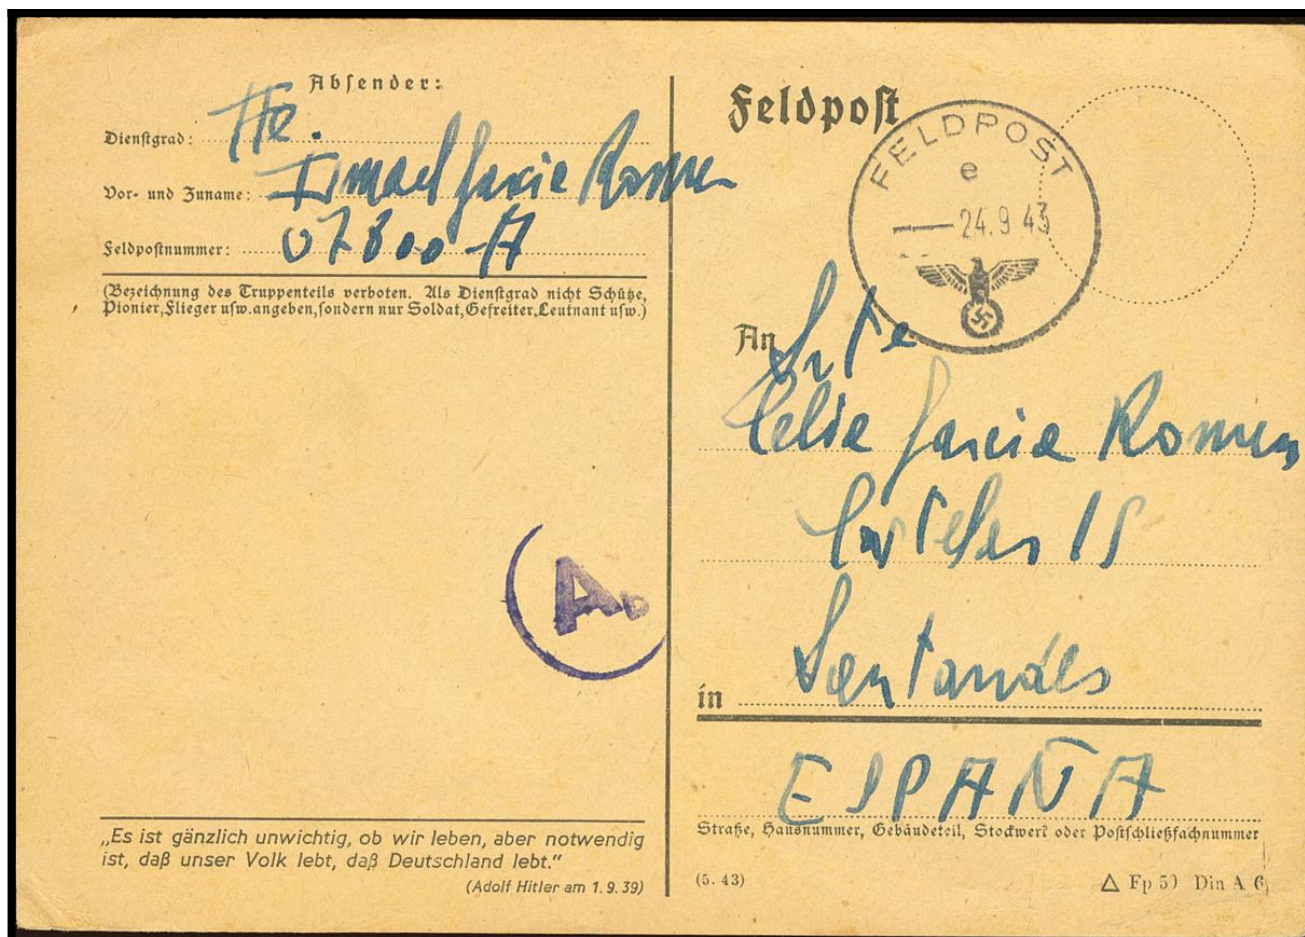 Absender:
Dienstgrad: Tte.
Vor- und Zuname: Ismael Garcia Romen
Feldpostnummer: 07800-A
(Bezeichnung des Truppenteils verboten. Als Dienstgrad nicht Schütze,
Pionier, Flieger usw. angeben, sondern nur Soldat, Gefreiter, Leutnant usw.)
Ab
„Es ist gänzlich unwichtig, ob wir leben, aber notwendig
ist, daß unser Volk lebt, daß Deutschland lebt.“
(Adolf Hitler am 1.9.39)
Feldpost
FELDPOST
e
24.9.43
An Srta
Celia Garcia Romen
15
in Santander
ESPAÑA
Straße, Hausnummer, Gebäudeteil, Stockwerk oder Postschließfachnummer
(5. 43)
△ Fp 50 Din A 6